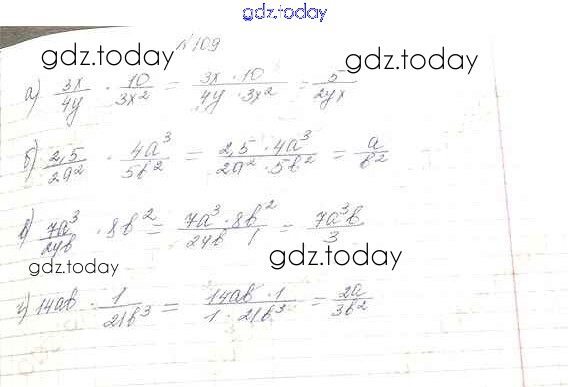 gdz.today
№109
gdz.today gdz.today
а) 3x/4y · 10/3x² = 3x · 10/4y · 3x² = 5/2yx
б) 2,5/2a² · 4a³/5b² = 2,5 · 4a³/2a² · 5b² = a/b²
в) 7a³/24b · 8b² = 7a³ · 8b²/24b · 1 = 7a³b/3
gdz.today gdz.today
г) 14ab · 1/21b³ = 14ab · 1/1 · 21b³ = 2a/3b²
gdz.today